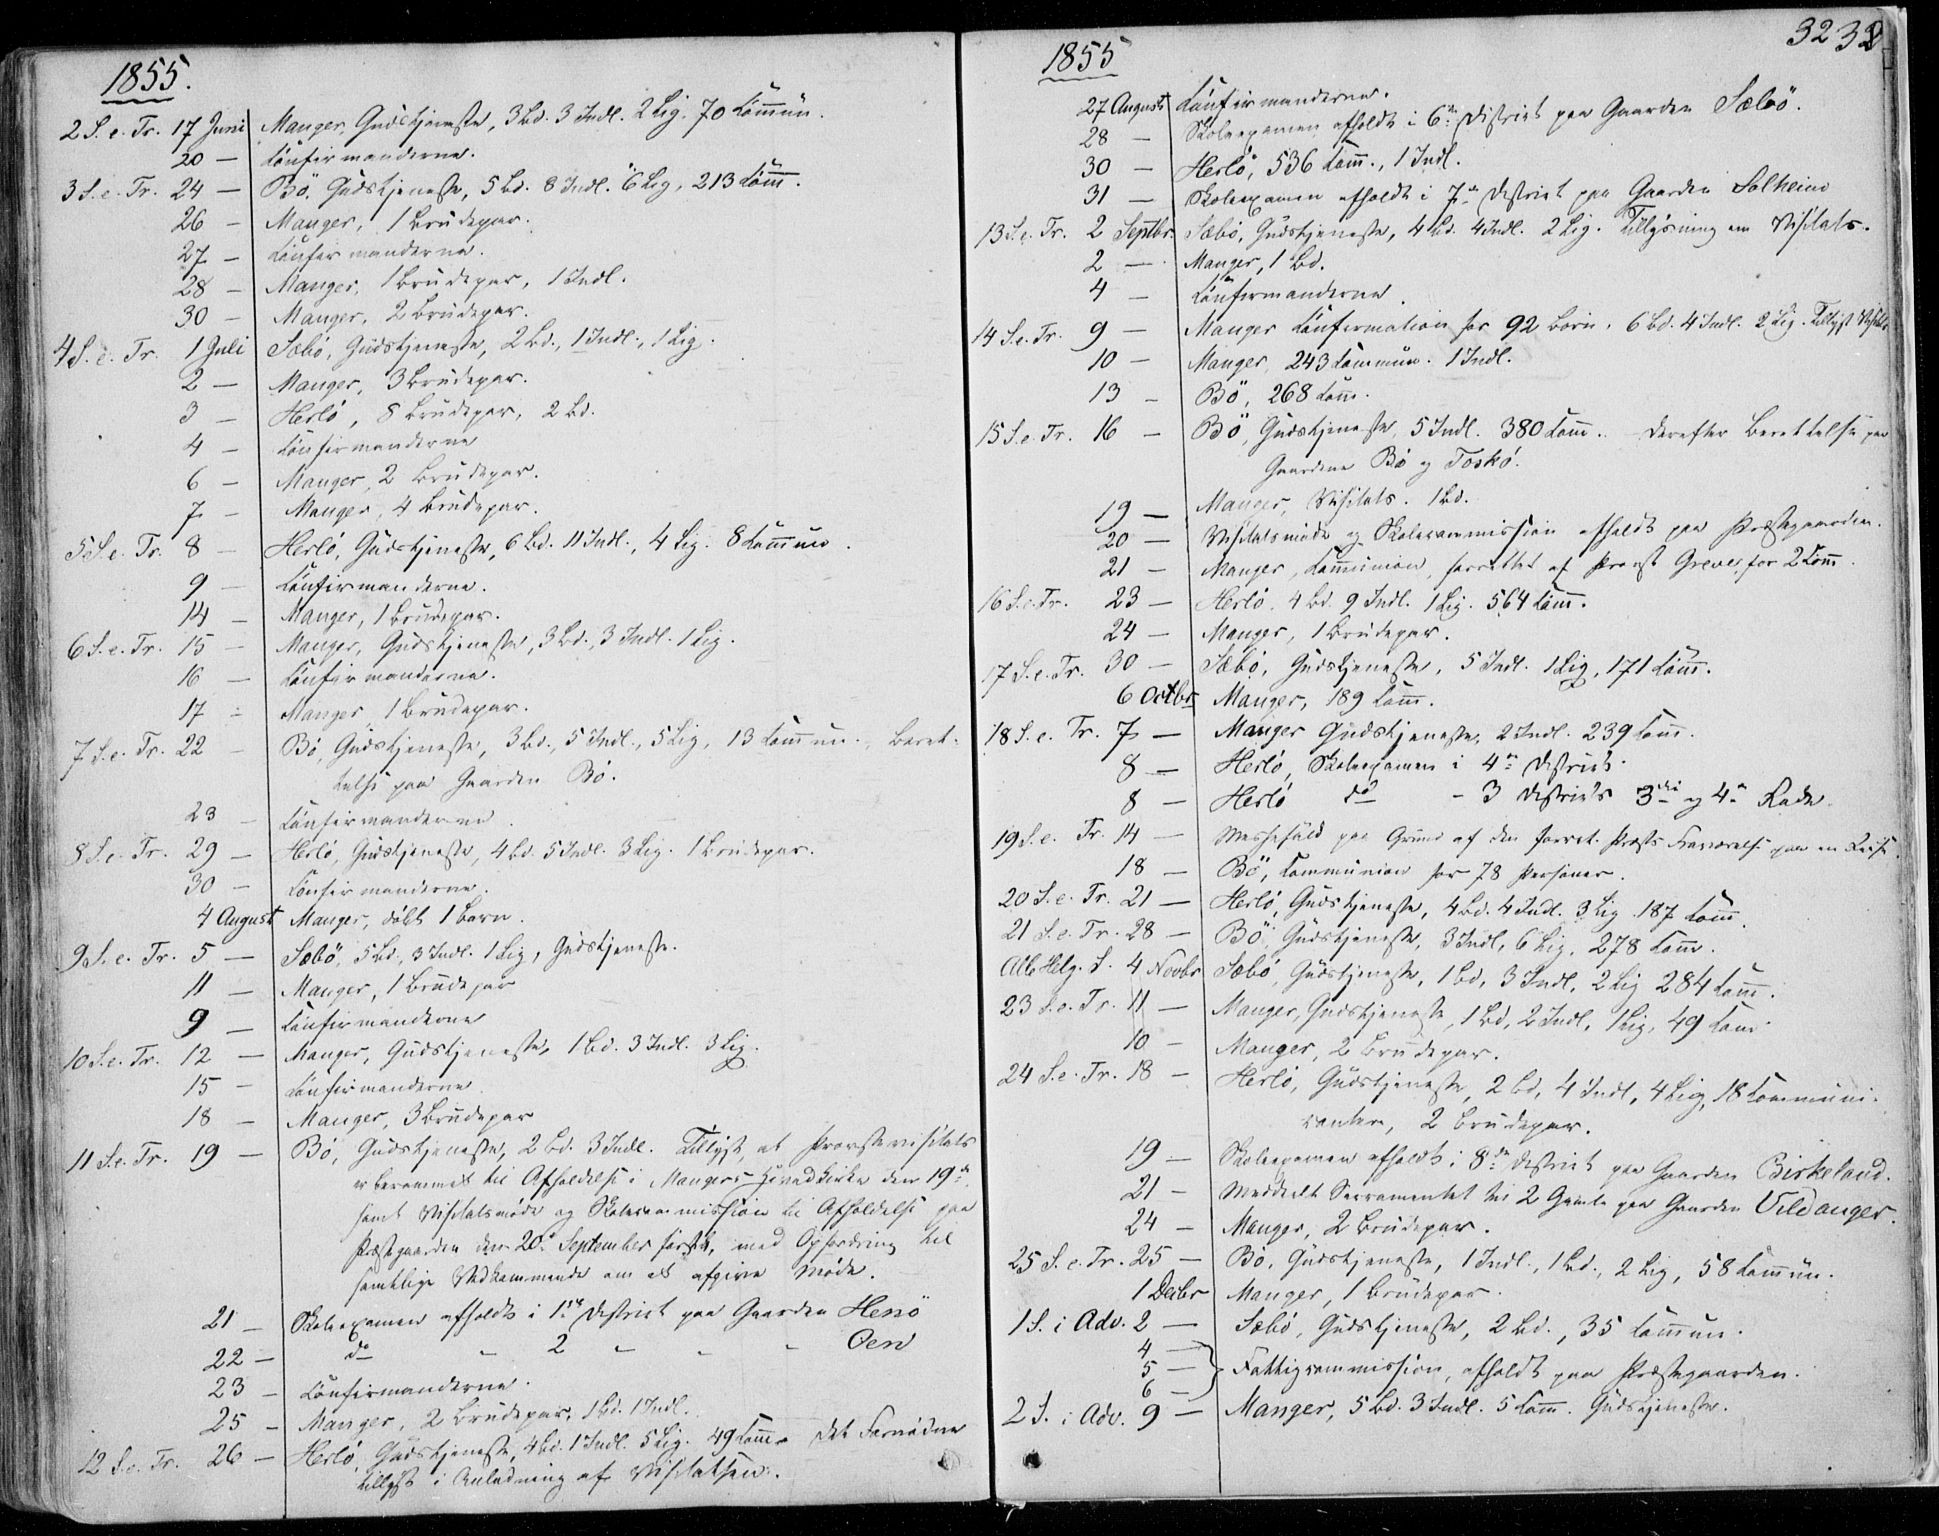 1855.
2 S. e. Tr. 17 Juni Manger, Gudstjeneste, 3 Bd. 3 Indl. 2 Lig. 70 Commun.
20 — Confirmanderne.
3 S. e. Tr. 24 — Bö, Gudstjeneste, 5 Bd. 8 Indl. 6 Lig, 213 Comm.
26 — Manger, 1 Brudepar.
27 — Confirmanderne.
28 — Manger, 1 Brudepar, 1 Indl.
30 — Manger, 2 Brudepar.
4 S. e. Tr. 1 Juli Sæbö, Gudstjeneste, 2 Bd., 1 Indl., 1 Lig.
2 — Manger, 3 Brudepar.
3 — Herlö, 8 Brudepar, 2 Bd.
4 — Confirmanderne
6 — Manger, 2 Brudepar.
7 — Manger, 4 Brudepar.
5 S. e. Tr. 8 — Herlö, Gudstjeneste, 6 Bd. 11 Indl., 4 Lig. 8 Commun.
9 — Confirmanderne.
14 — Manger, 1 Brudepar.
6 S. e. Tr. 15 — Manger, Gudstjeneste, 3 Bd., 3 Indl. 1 Lig.
16 — Confirmanderne.
17 — Manger, 1 Brudepar.
7 S. e. Tr. 22 — Bö, Gudstjeneste, 3 Bd., 5 Indl., 5 Lig, 13 Commun., Beret-
telse paa Gaarden Bö.
23 — Confirmanderne.
8 S. e. Tr. 29 — Herlö, Gudstjeneste, 4 Bd. 5 Indl. 3 Lig. 1 Brudepar.
30 — Confirmanderne.
4 August Manger, döbt 1 Barn.
9 S. e. Tr. 5 — Sæbö, 5 Bd., 3 Indl. 1 Lig, Gudstjeneste.
11 — Manger, 1 Brudepar
9 — Confirmanderne
10 S. e. Tr. 12 — Manger, Gudstjeneste, 1 Bd. 3 Indl. 3 Lig.
15 — Confirmanderne
18 — Manger, 3 Brudepar
11 S. e. Tr. 19 — Bö, Gudstjeneste, 2 Bd. 3 Indl. Tillyst, at Provstevisitats
er berammet til Afholdelse i Mangers Hovedkirke den 19de
samt Visitatsmöde og Skolecommission til Afholdelse paa
Præstegaarden den 20de September förstk, med Opfordring til
samtlige Vedkommende om at afgive Möde.
21 — Skoleexamen afholdt i 1ste District paa Gaarden Hersö
22 — do - 2 - - - Oen
23 — Confirmanderne.
25 — Manger, 2 Brudepar, 1 Bd. 1 Indl.
12 S. e. Tr. 26 — Herlö, Gudstjeneste, 4 Bd. 1 Indl. 5 Lig. 49 Comm. Det Fornödne
tillyst i Anledning af Visitatsen.
1855
32 32
27 August Confirmanderne.
28 — Skoleexamen afholdt i 6te District paa Gaarden Sæbö.
30 — Herlö, 536 Comm., 1 Indl.
31 — Skoleexamen afholdt i 7de District paa Gaarden Solheim
13 S. e. Tr. 2 Septbr. Sæbö, Gudstjeneste, 4 Bd. 4 Indl. 2 Lig. Tillysning om Visitats.
2 — Manger, 1 Bd.
4 — Confirmanderne.
14 S. e. Tr. 9 — Manger Confirmation for 92 Börn. 6 Bd. 4 Indl. 2 Lig. Tillyst Visitats
10 — Manger, 243 Commun. 1 Indl.
13 — Bö, 268 Com.
15 S. e. Tr. 16 — Bö, Gudstjeneste, 5 Indl. 380 Com. derefter Berettelse paa
Gaardene Bö og Toskö.
19 — Manger, Visitats. 1 Bd.
20 — Visitatsmöde og Skolecommission afholdt paa Præstegaarden.
21 — Manger, Communion, forrettet af Provst Greve, for 2 Comm.
16 S. e. Tr. 23 — Herlö, 4 Bd. 9 Indl. 1 Lig. 564 Comm.
24 — Manger, 1 Brudepar.
17 S. e. Tr. 30 — Sæbö, Gudstjeneste, 5 Indl. 1 Lig, 171 Comm.
6 Octbr Manger, 189 Comm.
18 S. e. Tr. 7 — Manger Gudstjeneste, 2 Indl. 239 Comm.
8 — Herlö, Skoleexamen i 4de District.
8 — Herlö do - 3 Districts 3die og 4de Rode
19 S. e. Tr. 14 — Messefald paa Grund af den forret. Præsts Fraværelse paa en Reise.
18 — Bö, Communion for 78 Personer.
20 S. e. Tr. 21 — Herlö, Gudstjeneste, 4 Bd. 4 Indl. 3 Lig. 187 Comm.
21 S. e. Tr. 28 — Bö, Gudstjeneste, 3 Indl, 6 Lig, 278 Comm.
Alle Helg. S. 4 Novbr Sæbö, Gudstjeneste, 1 Bd, 3 Indl, 2 Lig 284 Comm.
23 S. e. Tr. 11 — Manger, Gudstjeneste, 1 Bd, 2 Indl, 1 Lig, 49 Com.
10 — Manger, 2 Brudepar.
24 S. e. Tr. 18 — Herlö, Gudstjeneste, 2 Bd, 4 Indl, 4 Lig, 18 Communi-
canter, 2 Brudepar.
19 — Skoleexamen afholdt i 8de District paa Gaarden Birkeland.
21 — Meddeelt Sacramentet til 2 Gamle paa Gaarden Vildanger.
24 — Manger, 2 Brudepar.
25 S. e. Tr. 25 — Bö, Gudstjeneste, 1 Indl., 1 Bd., 2 Lig, 58 Commun.
1 Decbr Manger, 1 Brudepar.
1 S. i Adv. 2 — Sæbö, Gudstjeneste, 2 Bd., 35 Commun.
4 —
5 — } Fattigcommission, afholdt paa Præstegaarden.
6 —
2 S. i Adv. 9 — Manger, 5 Bd. 3 Indl. 5 Comm. Gudstjeneste.